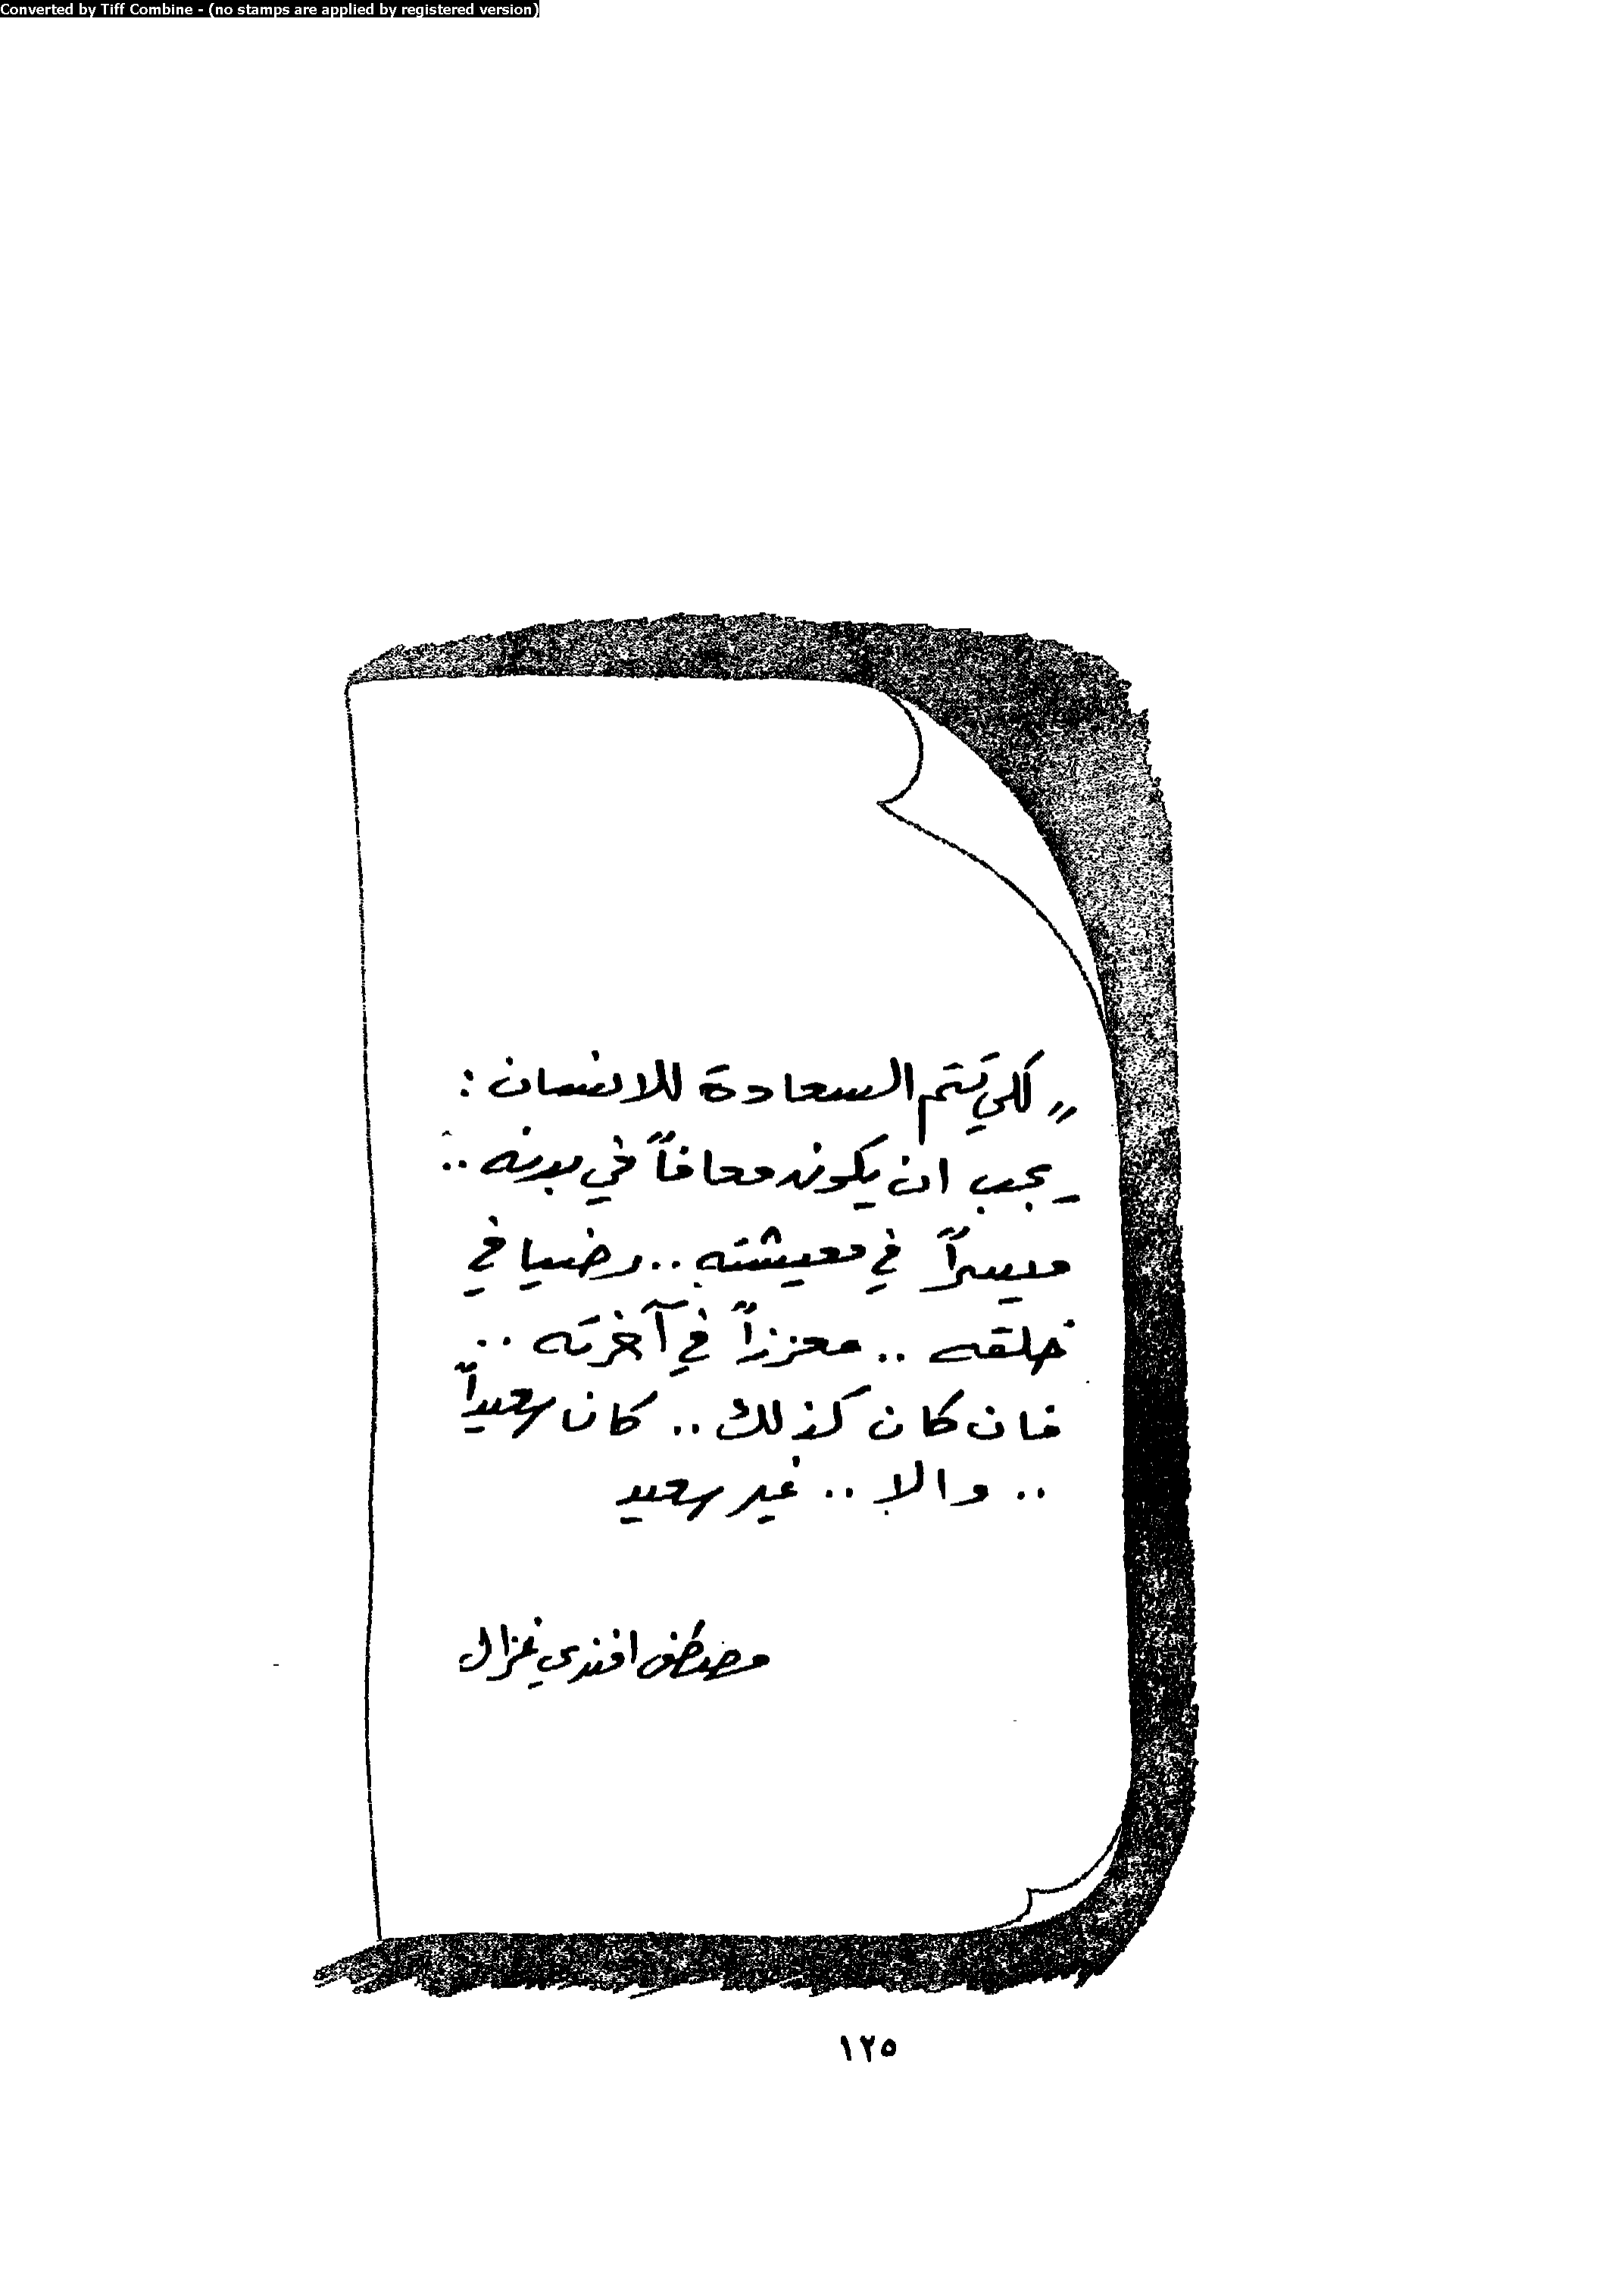 Converted by Tiff Combine - (no stamps are applied by registered version)
" لكي تتم السعادة للانسان :
يجب ان يكون معافاً في بدنه ..
ميسراً في معيشته .. رضيا في
خلقه .. معززاً في آخرته ..
فان كان كذلك .. كان سعيداً
.. والا .. غير سعيد
مصطفى افندي غزال
١٢٥